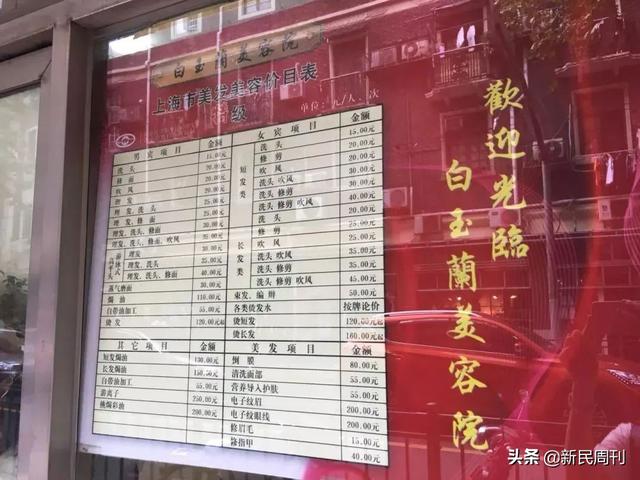 白玉蘭美容院
上海市美发美容价目表
级
单位:元/人、次
男宾项目 金额
洗头 15.00元
修面 20.00元
吹风 20.00元
理发 20.00元
理发、洗头 25.00元
理发、修面 30.00元
理发、洗头、修面 30.00元
理发、洗头、修面、吹风 35.00元
理发 30.00元
理发、洗头 35.00元
理发、洗头、修面 40.00元
蒸气磨面 30.00元
焗油 110.00元
自带油加工 55.00元
烫发 120.00元起
女宾项目 金额
短发类
洗头 15.00元
修剪 20.00元
吹风 20.00元
洗头 吹风 30.00元
洗头 修剪 30.00元
洗头 修剪 吹风 40.00元
长发类
洗头 20.00元
修剪 25.00元
吹风 25.00元
洗头 吹风 35.00元
洗头 修剪 35.00元
洗头 修剪 吹风 45.00元
束发、编辫 50.00元
各类烫发水 按牌论价
烫短发 120.00元起
烫长发 160.00元起
其它项目 金额
短发焗油 130.00元
长发焗油 150.00元
自带油加工 55.00元
游离子 250.00元
挑焗彩油 200.00元
美发项目 金额
倒膜 80.00元
清洗面部 55.00元
营养导入护肤 55.00元
电子纹眉 200.00元
电子纹眼线 200.00元
修眉毛 15.00元
修指甲 40.00元
歡迎光臨
白玉蘭美容院
头条 @新民周刊